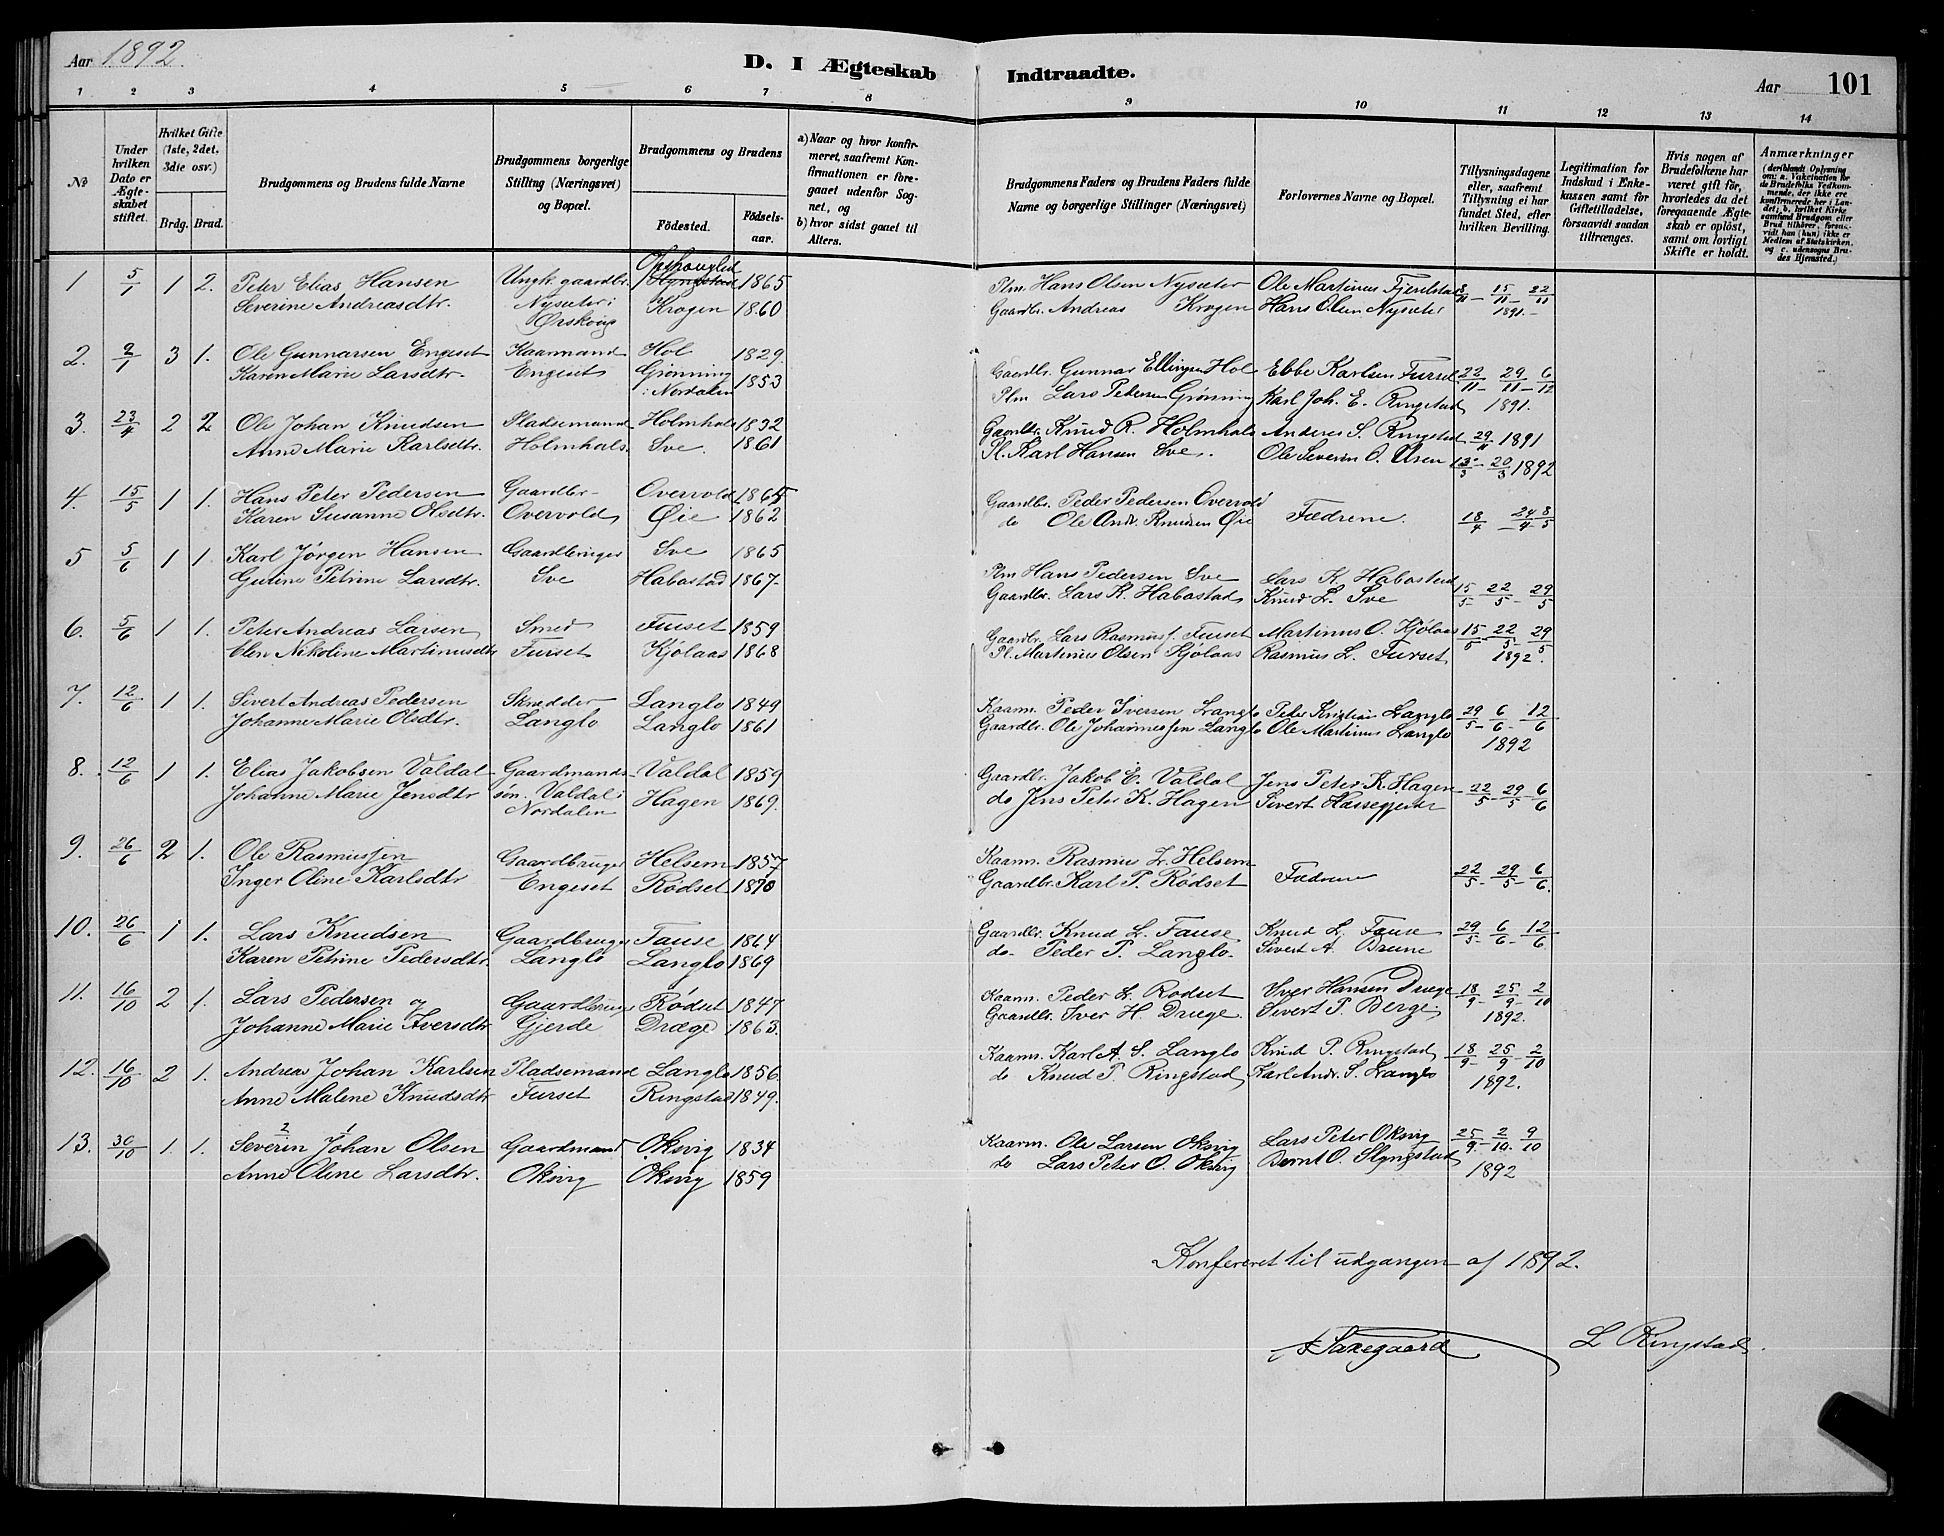 Aar 1892.
D. I Ægteskab Indtraadte.
Aar 101
1 2 3 4 5 6 7 8 9 10 11 12 13 14
№
Under hvilken Dato er Ægteskabet stiftet.
Hvilket Gifte (1ste, 2det, 3die osv.)
Brdg. Brud.
Brudgommens og Brudens fulde Navne
Brudgommens borgerlige Stilling (Næringsvei) og Bopæl.
Brudgommens og Brudens
Fødested. Fødselsaar.
a) Naar og hvor konfirmeret, saafremt Konfirmationen er foregaaet udenfor Sognet, og
b) hvor sidst gaaet til Alters.
Brudgommens Faders og Brudens Faders fulde Navne og borgerlige Stillinger (Næringsvei)
Forlovernes Navne og Bopæl.
Tillysningsdagene eller, saafremt Tillysning ei har fundet Sted, efter hvilken Bevilling.
Legitimation for Indskud i Enkekassen samt for Giftetilladelse, forsaavidt saadan tiltrænges.
Hvis nogen af Brudefolkene har været gift før, hvorledes da det foregaaende Ægteskab er opløst, samt om lovligt Skifte er holdt.
Anmærkninger (deriblandt Oplysning om: a. Vakcination for de Brudefolks Vedkommende, der ikke ere konfirmerede her i Landet; b. hvilket Kirkesamfund Brudgom eller Brud tilhører, forsaavidt han (hun) ikke er Medlem af Statskirken, og c. udensogns Brudes Hjemsted.)
1 5/1 1 2. Peter Elias Hansen Ungk. gaardbr. 1865 Plm. Hans Olsen Nysæter Ole Martinus Fjeldstad 8/11 – 15/11 – 22/11
Severine Andreasdtr. Nysæter i Ørskoug Krogen 1860 Gaardbr. Andreas Krogen Hans Olsen Nysæter 1891.
2. 2/1 3 1. Ole Gunnarsen Engeset Kaarmand Hol 1829. Gaardbr. Gunnar Ellingsen Hol Ebbe Karlsen Furset 22/11 – 29/11 – 6/12
Karen Marie Larsdtr. Engeset Grønning i Nordalen 1853 Plm Lars Petersen Grønning Karl Joh. E. Ringstad 1891.
3. 23/4 2 2 Ole Johan Knudsen Pladsemand Holmhals 1832 Gaardbr. Knud R. Holmhals Anders S. Ringstad 29/11 1891
Anne Marie Karlsdtr. Holmhals. Sve. 1861 Pl. Karl Hansen Sve. Ole Severin O. Ursen 13/3 – 20/3 1892
4. 15/5 1 1. Hans Peter Pedersen Gaardbr. Overvold 1865 Gaardbr. Peder Pedersen Overvold
Karen Susanne Olsdtr. Overvold Øie 1862 do Ole Andr. Knudsen Øie Fædrene. 18/4 – 24/4 – 8/5
5 5/6 1 1. Karl Jørgen Hansen Gaardbruger Sve 1865 Plm Hans Pedersen Sve Lars K. Habostad
Gurine Petrine Larsdtr. Sve Habostad 1867. Gaardbr. Lars K. Habostad Knud L. Sve 15/5 – 22/5 – 29/5
6. 5/6 1 1. Peter Andreas Larsen Smed Furset 1859 Gaardbr. Lars Rasmuss. Furset Martinus O. Kjølaas 15/5 – 22/5 – 29/5
Elen Nikoline Martinusdtr Furset Kjølaas 1868 Pl. Martinus Olsen Kjølaas Rasmus L. Furset 1892.
7. 12/6 1 1. Sivert Andreas Pedersen Skrædder Langlo 1849 Kaarm. Peder Iversen Langlo Peter Kristian Langlo 29/5 – 6/6 – 12/6
Johanne Marie Olsdtr. Langlo Langlo 1861 Gaardbr. Ole Johannessen Langlo Ole Martinus Langlo 1892
8. 12/6 1 1. Elias Jakobsen Valdal Gaardmands- Valdal 1859 Gaardbr. Jakob E. Valdal Jens Peter K. Hagen
Johanne Marie Jensdtr søn. Valdal i Nordalen Hagen 1869. do Jens Peter K. Hagen Sivert Hassegjerde 22/5 – 29/5 – 6/6
9. 26/6 2 1. Ole Rasmussen Gaardbruger Helsem 1857 Kaarm. Rasmus L. Helsem
Inger Oline Karlsdtr Engeset Rødset 1870 Gaardbr. Karl P. Rødset Fædrene 22/5 – 29/5 – 6/6.
10. 26/6 1 1. Lars Knudsen Gaardbruger Fause 1864 Gaardbr. Knud L. Fause Knud L. Fause 29/5 – 6/6 – 12/6
Karen Petrine Pedersdtr. Langlo Langlo 1869 do. Peder P. Langlo. Sivert A. Brune
11. 16/10 2 1. Lars Pedersen og Gaardbruger Rødset 1847 Kaarm. Peder L. Rødset Iver Hansen Dræge 18/9 – 25/9 – 2/10
Johanne Marie Iversdtr Gjerde Dræge 1863. Gaardbr. Iver H. Dræge. Sivert P. Berge 1892.
12. 16/10 2 1. Andreas Johan Karlsen Pladsemand Langlo 1856. Kaarm. Karl A. S. Langlo Knud P. Ringstad 18/9 – 25/9 – 2/10
Anne Malene Knudsdtr Furset Ringstad 1849. do Knud P. Ringstad Karl Andr. S. Langlo 1892.
13. 30/10 1. 1. Severin Johan Olsen Gaardmand Oksvig 1834 Kaarm. Ole Larsen Oksvig Lars Peter Oksvig 25/9 – 2/10 – 9/10
Anne Oline Larsdtr. Oksvig Oksvig 1859 do Lars Peter O. Oksvig Bernt O. Slyngstad 1892
Konfereret til udgangen af 1892.
Saxegaard L Ringstad.